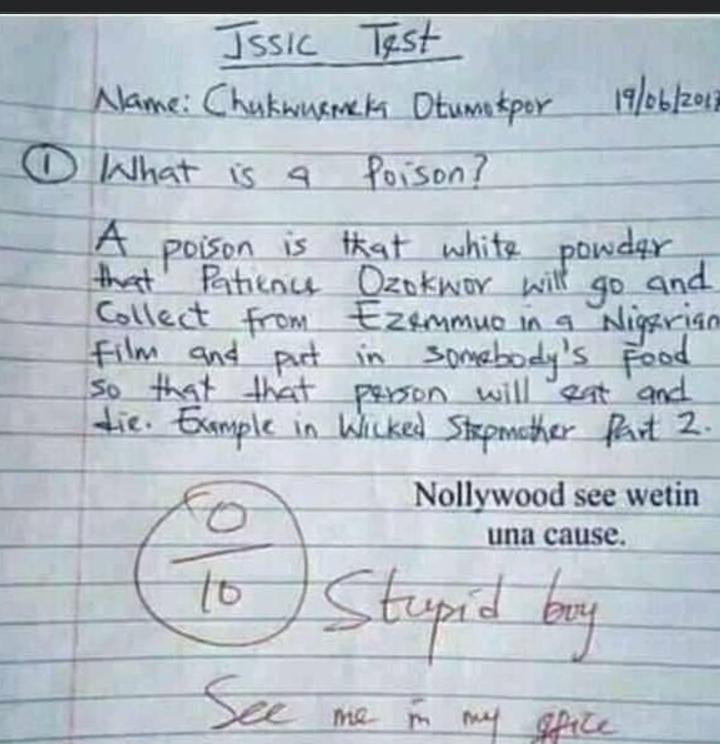 JSS1C Test
Name: Chukwuemeka Otumokpor 19/06/2017
① What is a Poison?
A poison is that white powder
that Patience Ozokwor will go and
Collect from Ezemmuo in a Nigerian
film and put in somebody's Food
so that that person will eat and
die. Example in Wicked Stepmother Part 2.
0
10
Nollywood see wetin
una cause.
Stupid boy
See me in my office